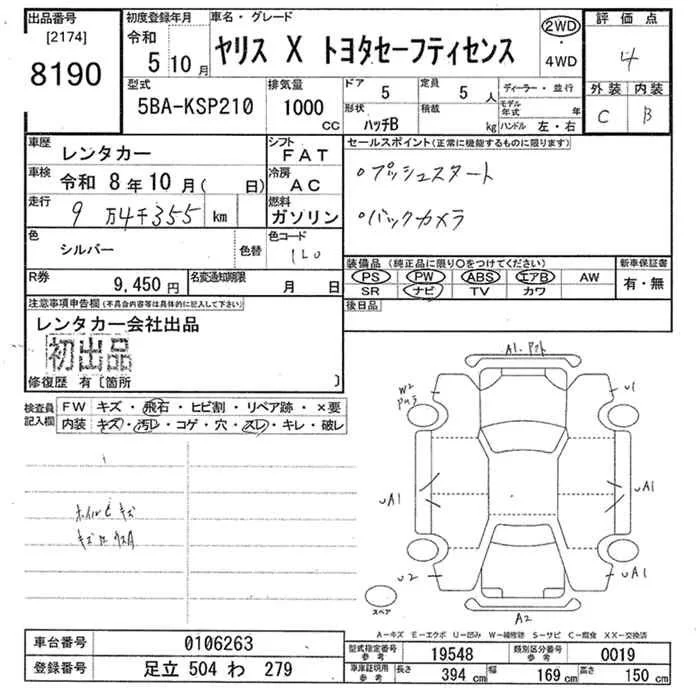 出品番号
[2174]
8190
初度登録年月
令和
5 10月
車名・グレード
ヤリス X トヨタセーフティセンス
2WD
・
4WD
評価点
4
外装 内装
C B
型式
5BA-KSP210
排気量
1000
CC
ドア
5
定員
5 人
形状
ハッチB
積載
kg
ディーラー・並行
モデル年式 年
ハンドル 左・右
車歴
レンタカー
シフト
FAT
車検 令和 8年10月( 日)
冷房
AC
走行
9万4千355 km
燃料
ガソリン
色
シルバー
色替
色コード
1L0
R券
9,450円
名変通知期限
月 日
セールスポイント(正常に機能するものに限ります)
○プッシュスタート
○バックカメラ
装備品(純正品に限り○をつけてください)
PS PW ABS エアB AW
SR ナビ TV カワ
新車保証書
有・無
後日品
注意事項申告欄(不具合内容等は具体的に記入して下さい)
レンタカー会社出品
初出品
修復歴 有〔箇所 〕
検査員記入欄
FW キズ・飛石・ヒビ割・リペア跡・×要
内装 キズ・汚レ・コゲ・穴・スレ・キレ・破レ
ホイルCキズ
A1.
W2
U1
A1
A1
U2
A1
A2
スペア
A－キズ E－エクボ U－凹み W－補修跡 S－サビ C－腐食 XX－交換済
車台番号
0106263
登録番号
足立 504 わ 279
型式指定番号
参考
19548
類別区分番号
参考
0019
車庫証明用
参考
長さ
394 cm
幅
169 cm
高さ
150 cm